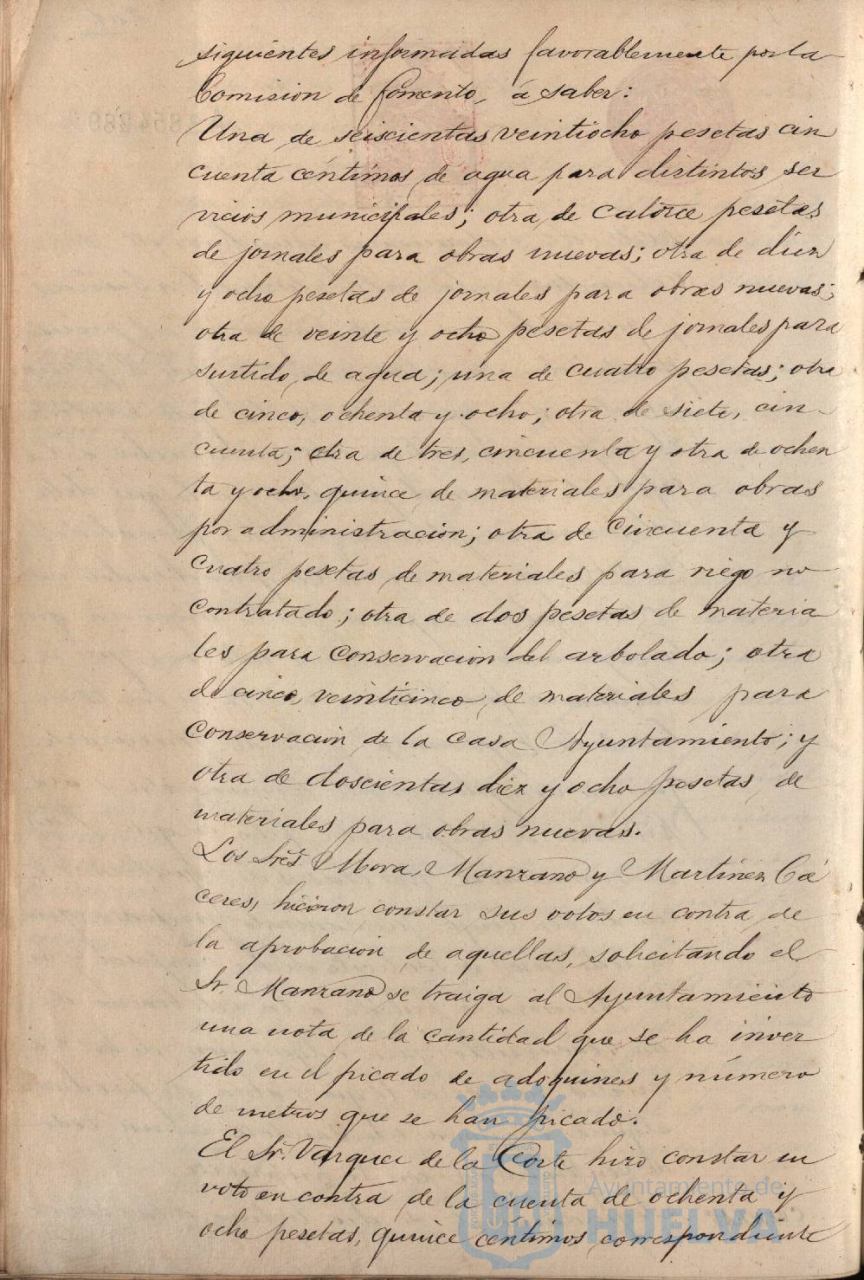 siguientes informadas favorablemente por la
Comision de fomento, á saber:
Una de seiscientas veintiocho pesetas cin
cuenta céntimos de agua para distintos ser
vicios municipales; otra de catorce pesetas
de jornales para obras nuevas; otra de diez
y ocho pesetas de jornales para obras nuevas;
otra de veinte y ocho pesetas de jornales para
surtido de agua; una de cuatro pesetas; otra
de cinco, ochenta y ocho; otra de siete, cin-
cuenta; otra de tres, cincuenta y otra de ochen
ta y ocho, quince de materiales para obras
por administracion; otra de cincuenta y
cuatro pesetas de materiales para riego no
contratado; otra de dos pesetas de materia
les para conservacion del arbolado; otra
de cinco, veinticinco, de materiales para
conservacion de la casa Ayuntamiento; y
otra de doscientas diez y ocho pesetas, de
materiales para obras nuevas.
Los Sres Mora, Manzano y Martinez Cá
ceres, hicieron constar sus votos en contra de
la aprobacion de aquellas, solicitando el
Sr. Manzano se traiga al Ayuntamiento
una nota de la cantidad que se ha inver
tido en el picado de adoquines y número
de metros que se han picado.
El Sr. Vazquez de la Corte hizo constar su
voto en contra de la cuenta de ochenta y
ocho pesetas, quince céntimos, correspondiente
Ayuntamiento de
HUELVA